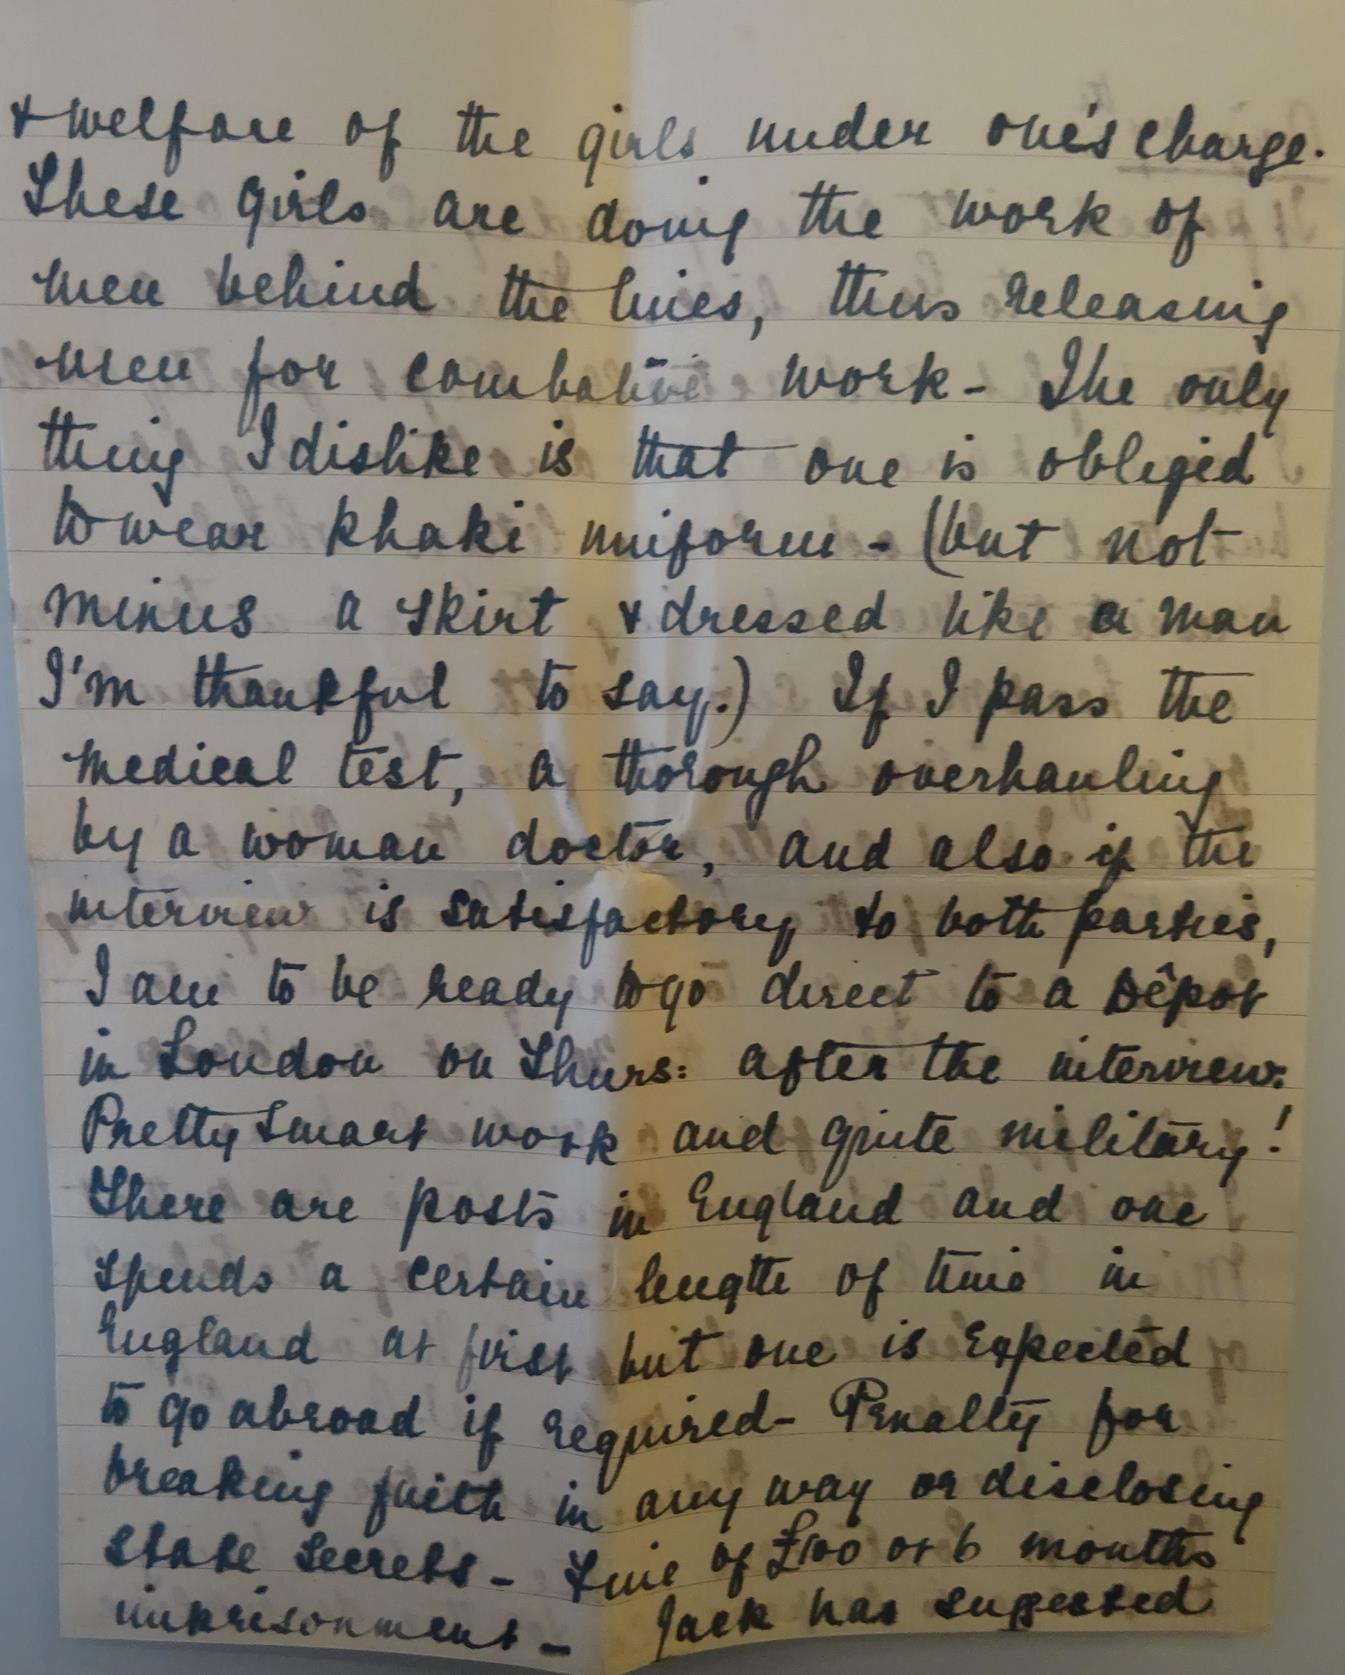 & welfare of the girls under one's charge.
These girls are doing the work of
men behind the lines, thus releasing
men for combative work - The only
thing I dislike is that one is obliged
to wear khaki uniform - (but not
minus a skirt & dressed like a man
I'm thankful to say.) If I pass the
medical test, a thorough overhauling
by a woman doctor, and also if the
interview is satisfactory to both parties,
I am to be ready to go direct to a Dêpot
in London on Thurs: after the interview.
Pretty smart work and quite military!
There are posts in England and one
spends a certain length of time in
England at first but one is expected
to go abroad if required - Penalty for
breaking faith in any way or disclosing
state secrets - Fine of £100 or 6 months
imprisonment - Jack has suggested